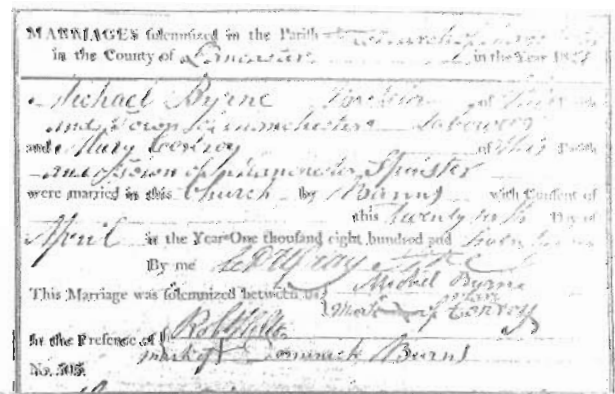 MARRIAGES solemnized in the Parish
in the County of Lancaster in the Year 182
Michael Byrne of this
and Town of Manchester Labourer
and Mary Conroy of this Parish
and Town of Manchester Spinster
were married in this Church by Banns with Consent of
this Twenty Day of
April in the Year One thousand eight hundred and Twenty
By me
This Marriage was solemnized between us Michel Byrne
Mark of Conroy
In the Presence of
mark of Dominick Burns
No. 505.